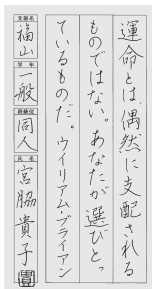 運命とは偶然に支配される
ものではない。あなたが選びとっ
ているものだ。ウイリアム・ブライアン
支部名 福山
学年 一般
段級位 同人
氏名 宮脇貴子